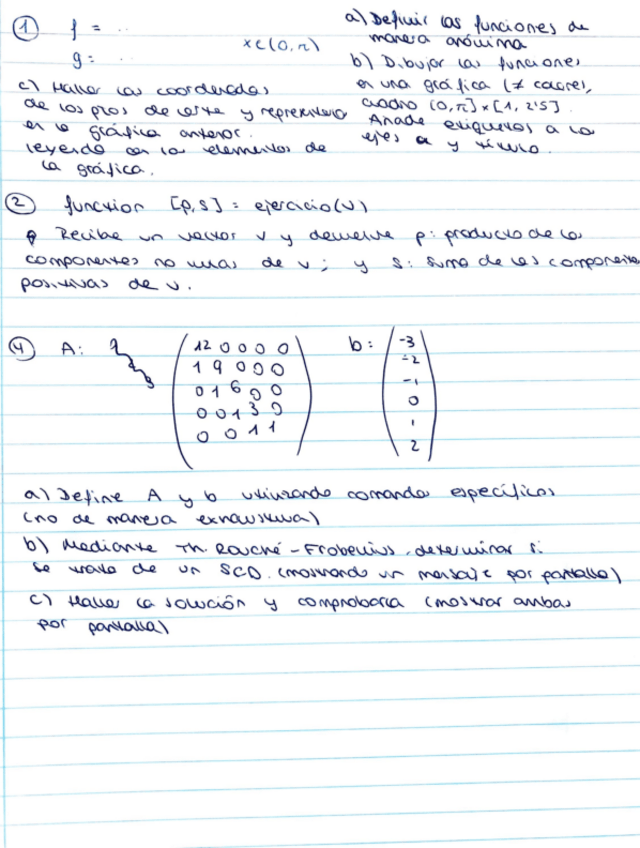 ① f = ..
g = ..
x ∈ (0, π)
a) Definir las funciones de
manera anónima
b) Dibujar las funciones
en una gráfica (≠ colores),
cuadro [0, π] x [1, 2'5].
Añade etiquetas a los
ejes a y título.
c) Hallar las coordenadas
de los ptos de corte y represéntalo
en la gráfica anterior.
leyenda con los elementos de
la gráfica.
② function [p, s] = ejercicio(v)
Recibe un vector v y devuelve p: producto de las
componentes no nulas de v; y s: suma de las componentes
positivas de v.
④ A:
12 0 0 0 0
1 9 0 0 0
0 1 6 0 0
0 0 1 3 0
0 0 1 1
b:
-3
-2
-1
0
1
2
a) Define A y b utilizando comandos específicos
(no de manera exhaustiva)
b) Mediante Th. Rouché-Frobenius, determinar si
se trata de un SCD. (mostrando un mensaje por pantalla)
c) Hallar la solución y comprobarla (mostrar ambas
por pantalla)